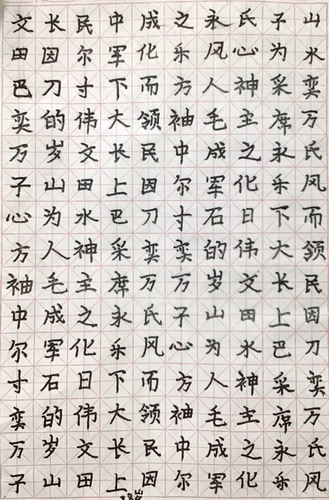 文长民中成之永氏子山
田因尔军化乐风心为水
巴刀寸下而方人神采奕
奕的伟大领袖毛主席万
万岁文长民中成之永氏
子山田上因尔军化乐风
心为水巴刀寸石日下而
方人神采奕奕的伟大领
袖毛主席万万岁文长民
中成之永氏子山田上因
尔军化乐风心为水巴刀
寸石日下而方人神采奕
奕的伟大领袖毛主席万
万岁文长民中成之永氏
子山田上因尔军化乐风